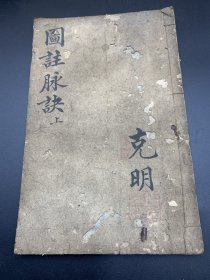 圖註脉訣上
克明